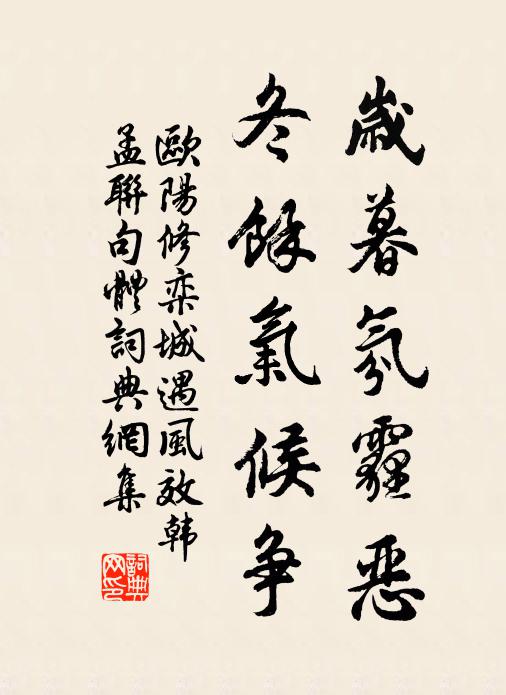 歲暮氛霾惡
冬餘氣候争
歐陽修栾城遇風效韩
孟聯句體詞典網集
詞典网印